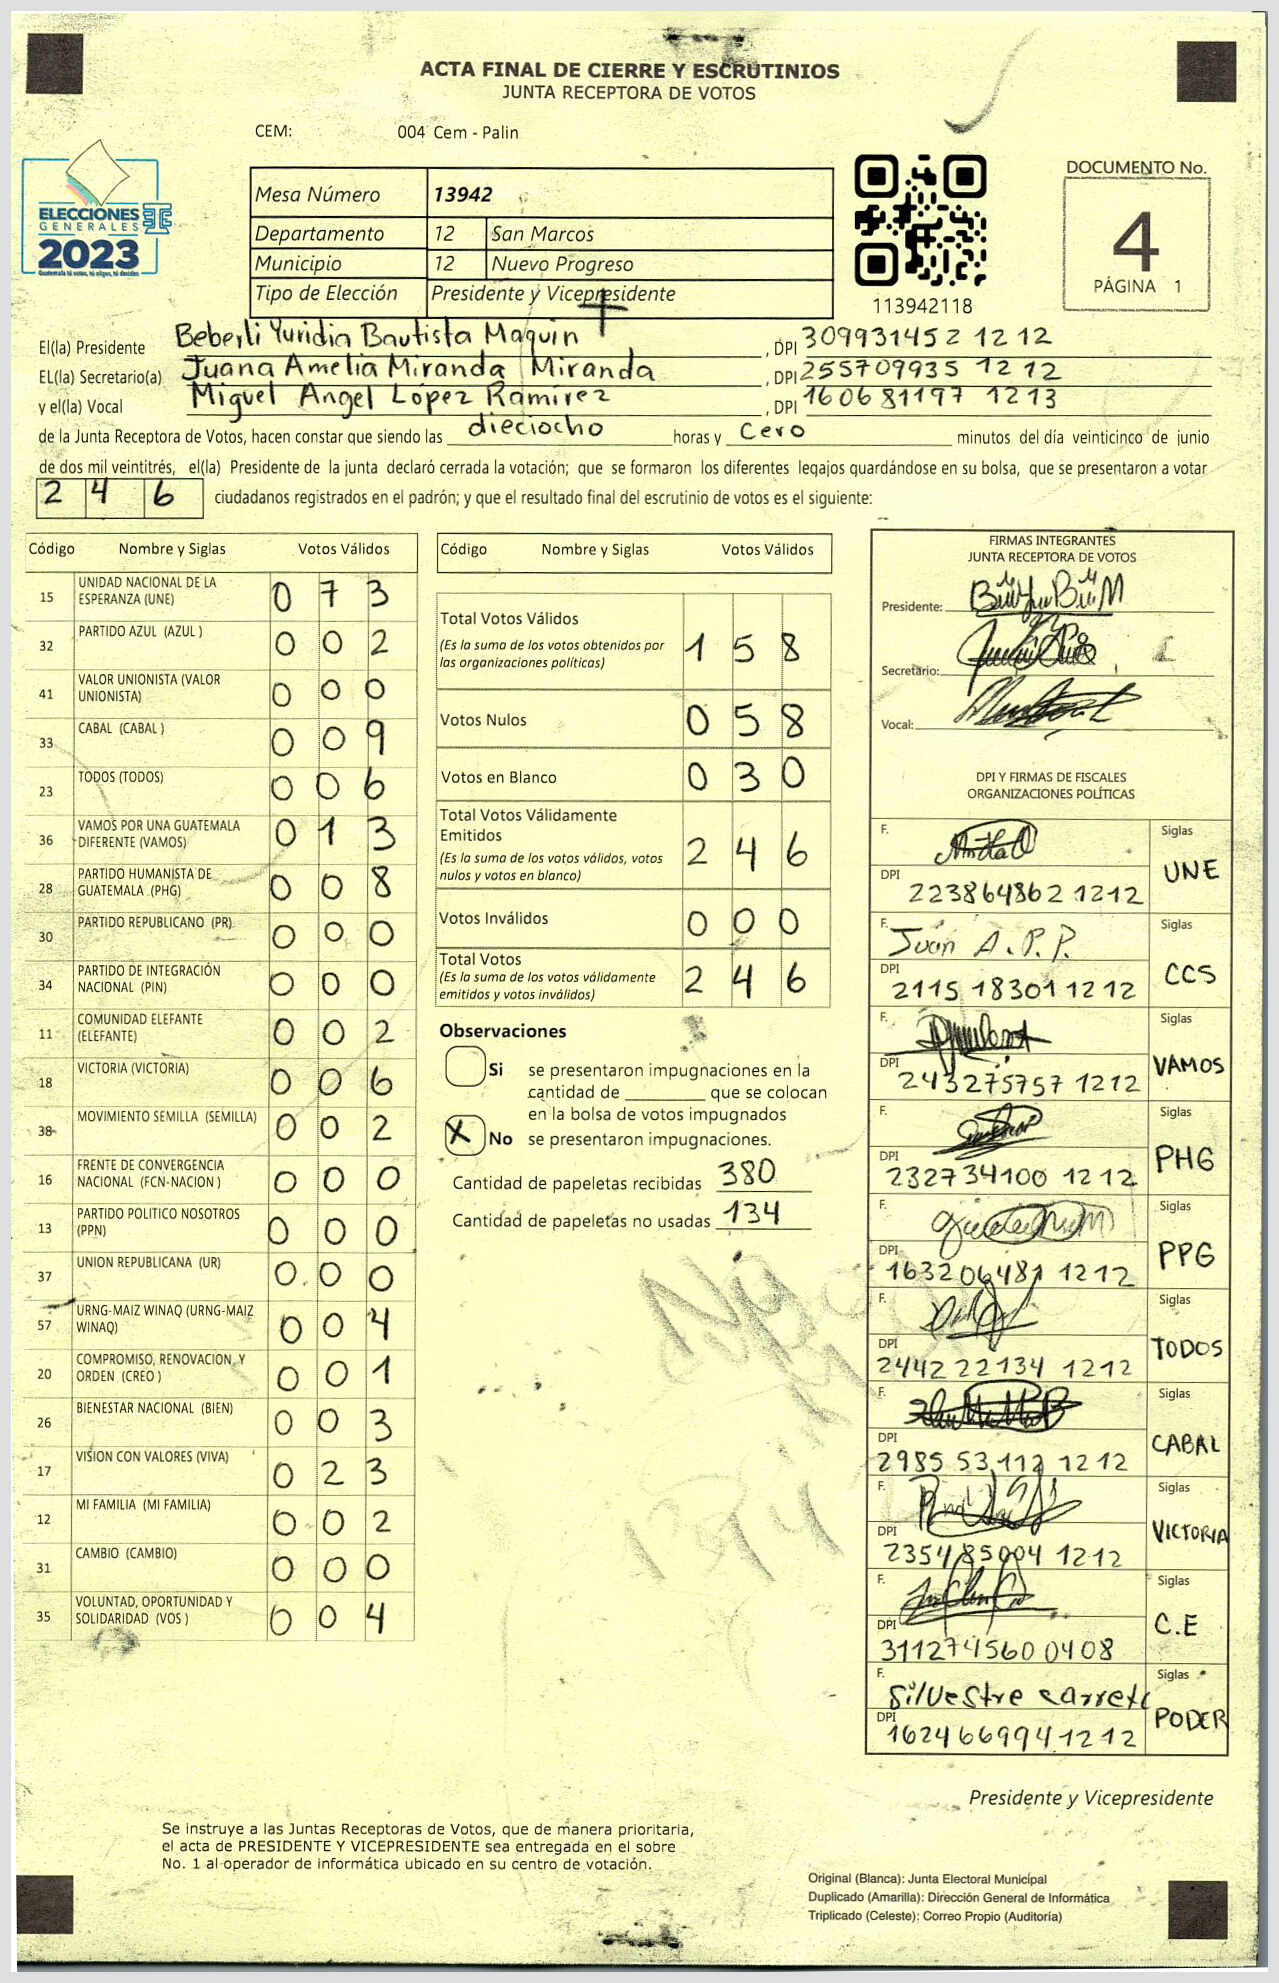 ACTA FINAL DE CIERRE Y ESCRUTINIOS
JUNTA RECEPTORA DE VOTOS
CEM: 004 Cem - Palin
ELECCIONES
GENERALES
2023
Guatemala tú votas, tú eliges, tú decides
Mesa Número 13942
Departamento 12 San Marcos
Municipio 12 Nuevo Progreso
Tipo de Elección Presidente y Vicepresidente
113942118
DOCUMENTO No.
4
PÁGINA 1
El(la) Presidente Beberli Yuridia Bautista Maquin , DPI 309931452 12 12
EL(la) Secretario(a) Juana Amelia Miranda Miranda , DPI 255709935 12 12
y el(la) Vocal Miguel Angel López Ramírez , DPI 160681197 1213
de la Junta Receptora de Votos, hacen constar que siendo las dieciocho horas y cero minutos del día veinticinco de junio
de dos mil veintitrés, el(la) Presidente de la junta declaró cerrada la votación; que se formaron los diferentes legajos guardándose en su bolsa, que se presentaron a votar
2 4 6 ciudadanos registrados en el padrón; y que el resultado final del escrutinio de votos es el siguiente:
Código Nombre y Siglas Votos Válidos
15 UNIDAD NACIONAL DE LA ESPERANZA (UNE) 0 7 3
32 PARTIDO AZUL (AZUL ) 0 0 2
41 VALOR UNIONISTA (VALOR UNIONISTA) 0 0 0
33 CABAL (CABAL ) 0 0 9
23 TODOS (TODOS) 0 0 6
36 VAMOS POR UNA GUATEMALA DIFERENTE (VAMOS) 0 1 3
28 PARTIDO HUMANISTA DE GUATEMALA (PHG) 0 0 8
30 PARTIDO REPUBLICANO (PR) 0 0 0
34 PARTIDO DE INTEGRACIÓN NACIONAL (PIN) 0 0 0
11 COMUNIDAD ELEFANTE (ELEFANTE) 0 0 2
18 VICTORIA (VICTORIA) 0 0 6
38 MOVIMIENTO SEMILLA (SEMILLA) 0 0 2
16 FRENTE DE CONVERGENCIA NACIONAL (FCN-NACION ) 0 0 0
13 PARTIDO POLITICO NOSOTROS (PPN) 0 0 0
37 UNION REPUBLICANA (UR) 0 0 0
57 URNG-MAIZ WINAQ (URNG-MAIZ WINAQ) 0 0 4
20 COMPROMISO, RENOVACION, Y ORDEN (CREO ) 0 0 1
26 BIENESTAR NACIONAL (BIEN) 0 0 3
17 VISION CON VALORES (VIVA) 0 2 3
12 MI FAMILIA (MI FAMILIA) 0 0 2
31 CAMBIO (CAMBIO) 0 0 0
35 VOLUNTAD, OPORTUNIDAD Y SOLIDARIDAD (VOS ) 0 0 4
Código Nombre y Siglas Votos Válidos
Total Votos Válidos 1 5 8
(Es la suma de los votos obtenidos por
las organizaciones políticas)
Votos Nulos 0 5 8
Votos en Blanco 0 3 0
Total Votos Válidamente
Emitidos 2 4 6
(Es la suma de los votos válidos, votos
nulos y votos en blanco)
Votos Inválidos 0 0 0
Total Votos 2 4 6
(Es la suma de los votos válidamente
emitidos y votos inválidos)
Observaciones
Si se presentaron impugnaciones en la
cantidad de ________ que se colocan
en la bolsa de votos impugnados
X No se presentaron impugnaciones.
Cantidad de papeletas recibidas 380
Cantidad de papeletas no usadas 134
FIRMAS INTEGRANTES
JUNTA RECEPTORA DE VOTOS
Presidente:
Secretario:
Vocal:
DPI Y FIRMAS DE FISCALES
ORGANIZACIONES POLÍTICAS
F. Siglas
DPI 223864862 1212 UNE
F. Juan A. P. P. Siglas
DPI 2115 18301 1212 CCS
F. Siglas
DPI 243275757 1212 VAMOS
F. Siglas
DPI 232734100 1212 PHG
F. Siglas
DPI 163206481 1212 PPG
F. Siglas
DPI 2442 22134 1212 TODOS
F. Siglas
DPI 2985 53 112 1212 CABAL
F. Siglas
DPI 235485004 1212 VICTORIA
F. Siglas
DPI 311274560 0408 C.E
F. Silvestre carreto Siglas
DPI 162466994 1212 PODER
Presidente y Vicepresidente
Se instruye a las Juntas Receptoras de Votos, que de manera prioritaria,
el acta de PRESIDENTE Y VICEPRESIDENTE sea entregada en el sobre
No. 1 al operador de informática ubicado en su centro de votación.
Original (Blanca): Junta Electoral Municipal
Duplicado (Amarilla): Dirección General de Informática
Triplicado (Celeste): Correo Propio (Auditoría)